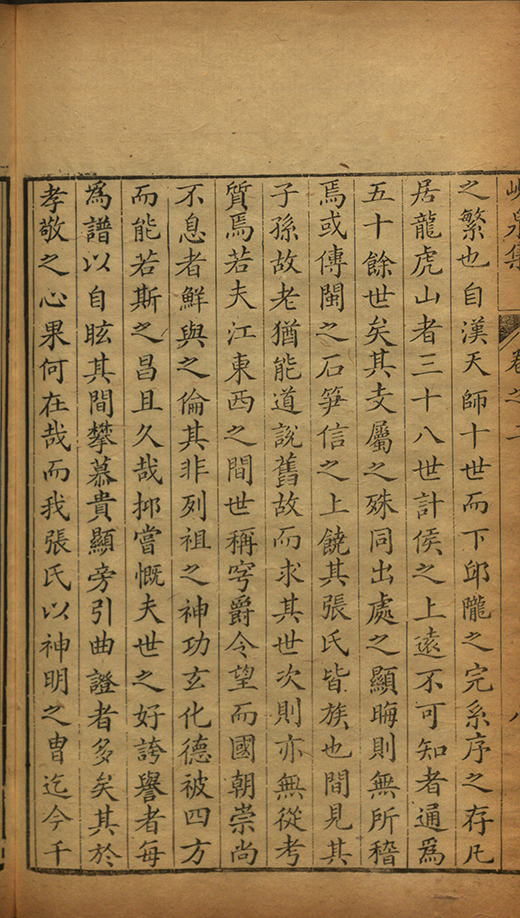 峴泉集
卷之二
八
之繁也自漢天師十世而下邱隴之完系序之存凡
居龍虎山者三十八世計侯之上遠不可知者通爲
五十餘世矣其支屬之殊同出處之顯晦則無所稽
焉或傳閩之石笋信之上饒其張氏皆族也間見其
子孫故老猶能道說舊故而求其世次則亦無從考
質焉若夫江東西之間世稱穹爵令望而國朝崇尚
不息者鮮與之倫其非列祖之神功玄化德被四方
而能若斯之昌且久哉抑嘗慨夫世之好誇譽者每
爲譜以自眩其間攀慕貴顯旁引曲證者多矣其於
孝敬之心果何在哉而我張氏以神明之胄迄今千